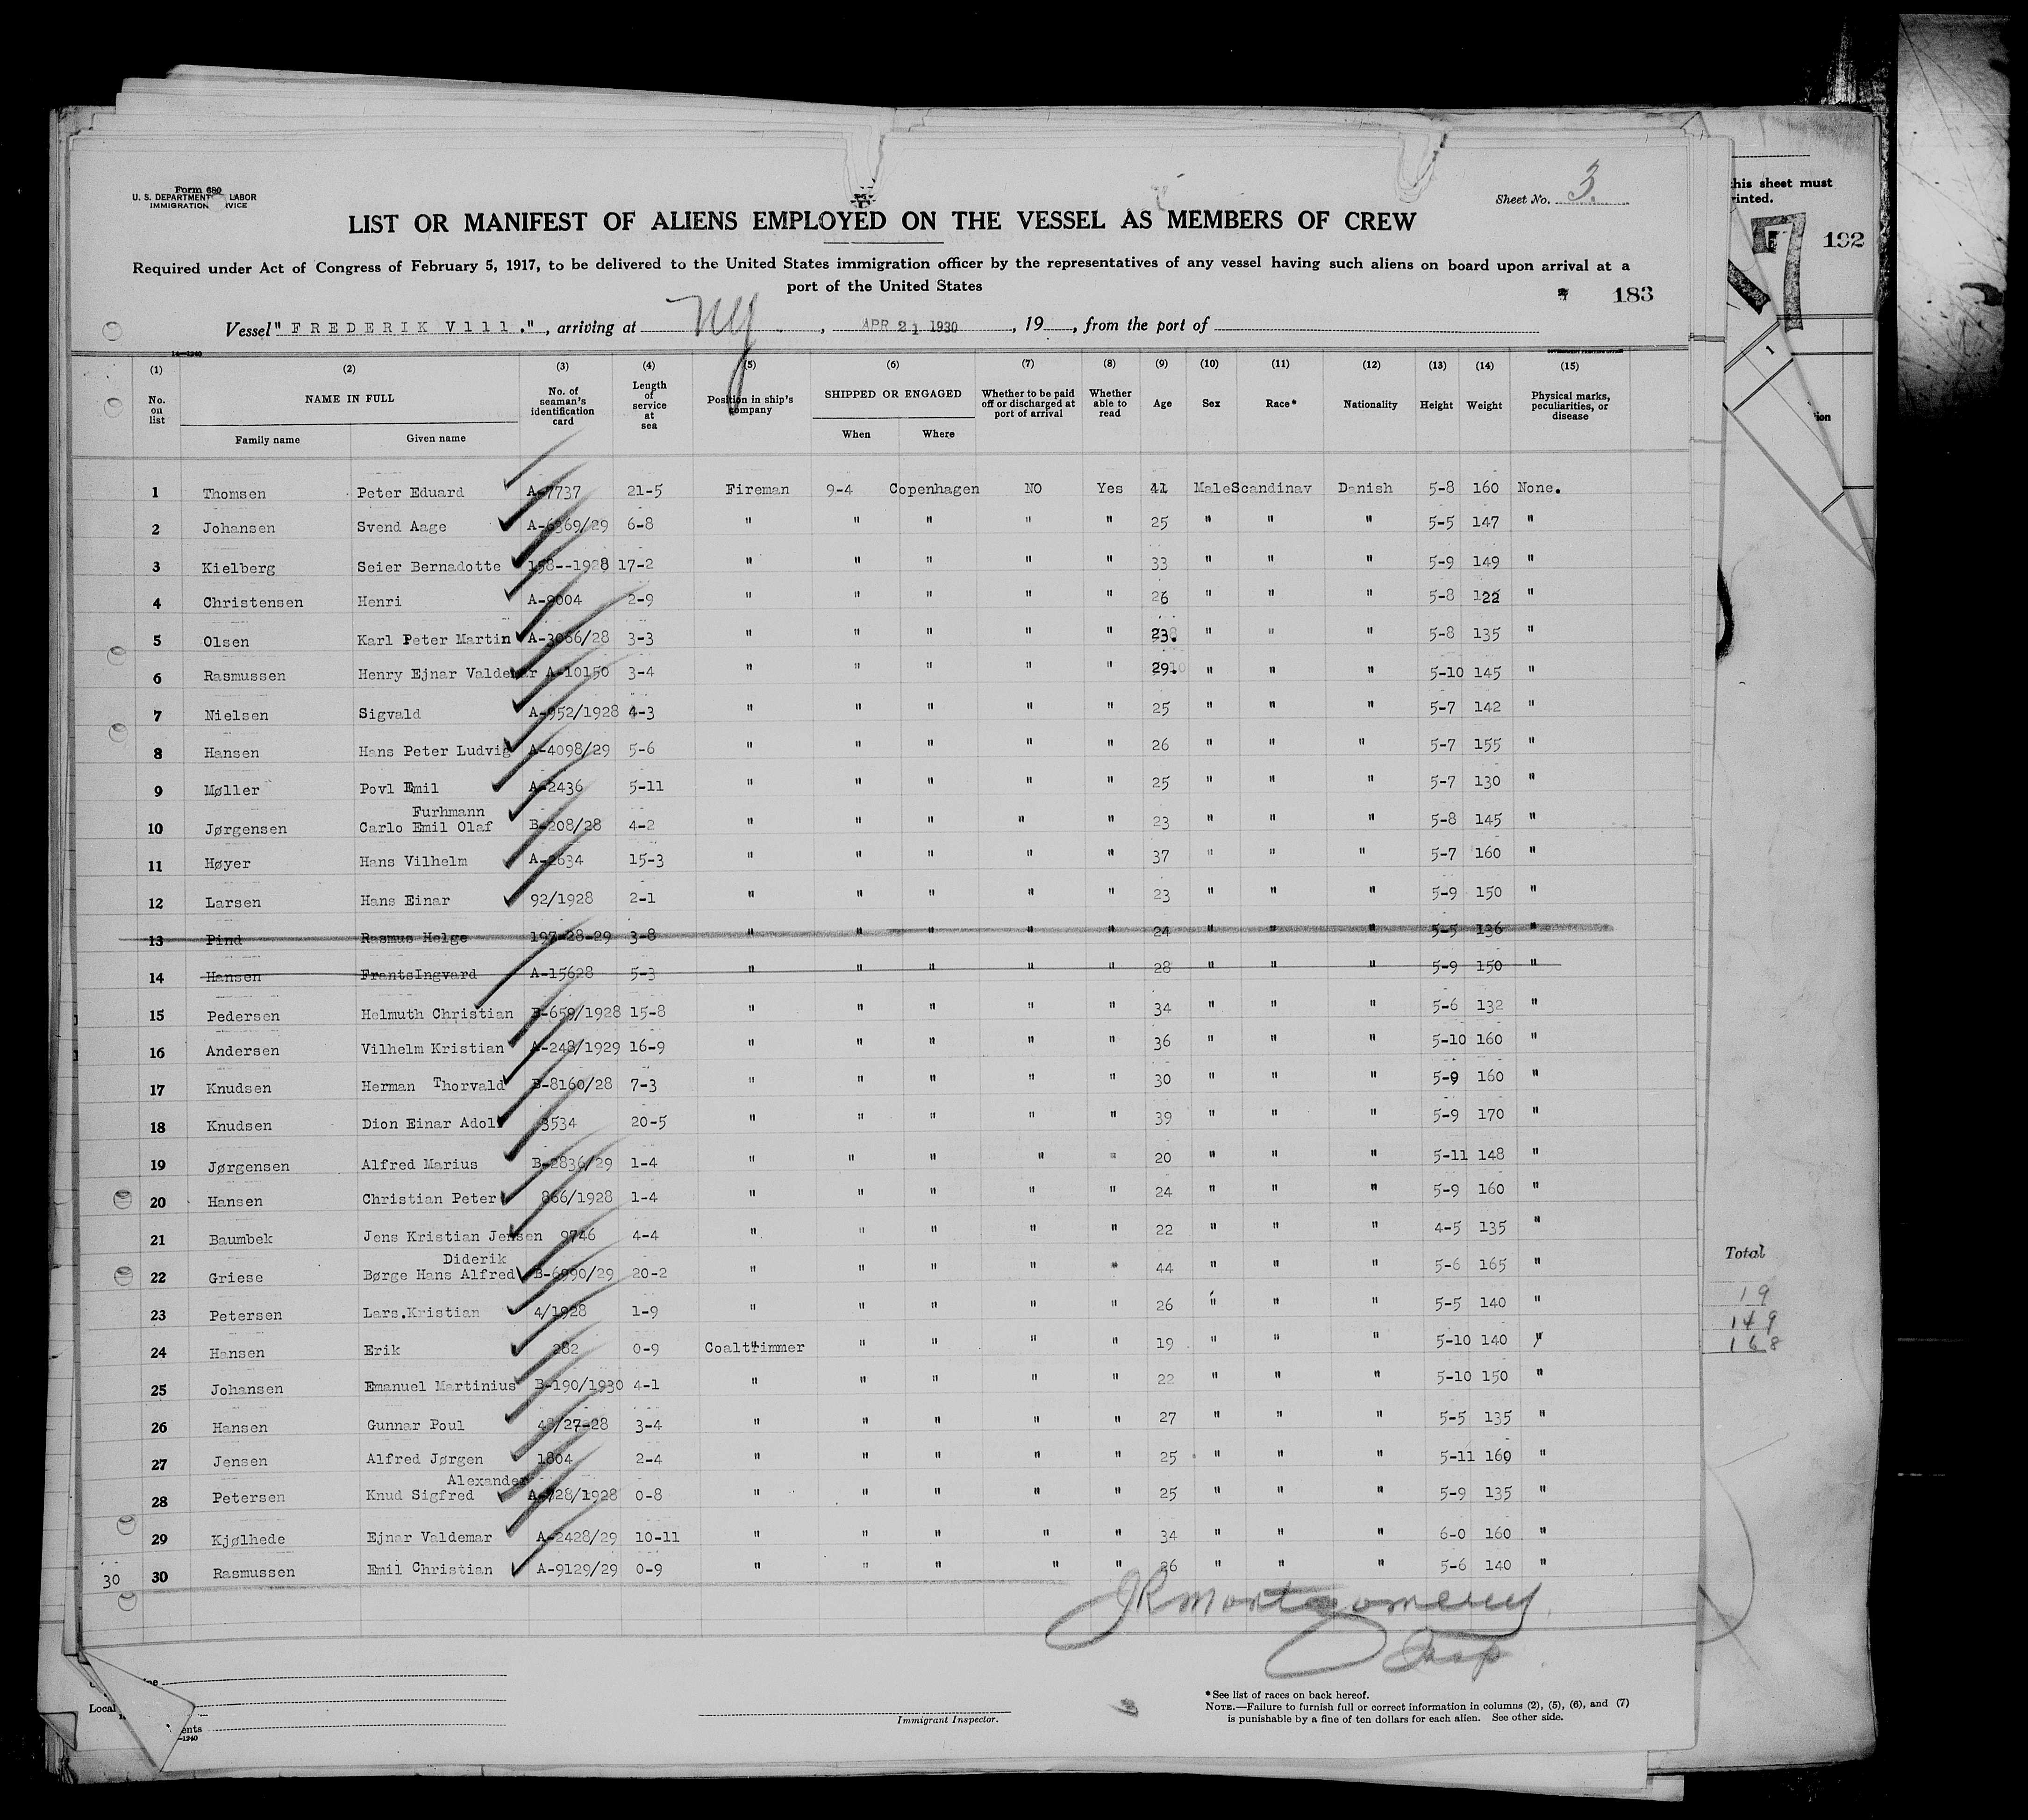 Form 680
U. S. DEPARTMENT LABOR
IMMIGRATION
Sheet No. 3.
LIST OR MANIFEST OF ALIENS EMPLOYED ON THE VESSEL AS MEMBERS OF CREW
Required under Act of Congress of February 5, 1917, to be delivered to the United States immigration officer by the representatives of any vessel having such aliens on board upon arrival at a
port of the United States
183
Vessel "FREDERIK V111.", arriving at NY, APR 21 1930, 19 , from the port of
14—1940
(1) (2) (3) (4) (5) (6) (7) (8) (9) (10) (11) (12) (13) (14) (15)
No. on list NAME IN FULL No. of seaman's identification card Length of service at sea Position in ship's company SHIPPED OR ENGAGED Whether to be paid off or discharged at port of arrival Whether able to read Age Sex Race* Nationality Height Weight Physical marks, peculiarities, or disease
Family name Given name When Where
1 Thomsen Peter Eduard A-7737 21-5 Fireman 9-4 Copenhagen NO Yes 41 Male Scandinav Danish 5-8 160 None.
2 Johansen Svend Aage A-6369/29 6-8 " " " " " 25 " " " 5-5 147 "
3 Kielberg Seier Bernadotte 158--1928 17-2 " " " " " 33 " " " 5-9 149 "
4 Christensen Henri A-9004 2-9 " " " " " 26 " " " 5-8 122 "
5 Olsen Karl Peter Martin A-3066/28 3-3 " " " " " 23. " " " 5-8 135 "
6 Rasmussen Henry Ejnar Valdemar A-10150 3-4 " " " " " 29. " " " 5-10 145 "
7 Nielsen Sigvald A-952/1928 4-3 " " " " " 25 " " " 5-7 142 "
8 Hansen Hans Peter Ludvig A-4098/29 5-6 " " " " " 26 " " " 5-7 155 "
9 Møller Povl Emil A-2436 5-11 " " " " " 25 " " " 5-7 130 "
Furhmann
10 Jørgensen Carlo Emil Olaf B-208/28 4-2 " " " " " 23 " " " 5-8 145 "
11 Høyer Hans Vilhelm A-2634 15-3 " " " " " 37 " " " 5-7 160 "
12 Larsen Hans Einar 92/1928 2-1 " " " " " 23 " " " 5-9 150 "
13 Pind Rasmus Helge 197-28-29 3-8 " " " " " 24 " " " 5-5 136 "
14 Hansen FrantsIngvard A-15628 5-3 " " " " " 28 " " " 5-9 150 "
15 Pedersen Helmuth Christian B-659/1928 15-8 " " " " " 34 " " " 5-6 132 "
16 Andersen Vilhelm Kristian A-248/1929 16-9 " " " " " 36 " " " 5-10 160 "
17 Knudsen Herman Thorvald B-8160/28 7-3 " " " " " 30 " " " 5-9 160 "
18 Knudsen Dion Einar Adolf 3534 20-5 " " " " " 39 " " " 5-9 170 "
19 Jørgensen Alfred Marius B-2836/29 1-4 " " " " " 20 " " " 5-11 148 "
20 Hansen Christian Peter 866/1928 1-4 " " " " " 24 " " " 5-9 160 "
21 Baumbek Jens Kristian Jensen 9746 4-4 " " " " " 22 " " " 4-5 135 "
Diderik
22 Griese Børge Hans Alfred B-6990/29 20-2 " " " " " 44 " " " 5-6 165 "
23 Petersen Lars.Kristian 4/1928 1-9 " " " " " 26 " " " 5-5 140 "
24 Hansen Erik 282 0-9 Coaltrimmer " " " " 19 " " " 5-10 140 "
25 Johansen Emanuel Martinius B-190/1930 4-1 " " " " " 22 " " " 5-10 150 "
26 Hansen Gunnar Poul 43/27-28 3-4 " " " " " 27 " " " 5-5 135 "
27 Jensen Alfred Jørgen 1804 2-4 " " " " " 25 " " " 5-11 160 "
Alexander
28 Petersen Knud Sigfred A-728/1928 0-8 " " " " " 25 " " " 5-9 135 "
29 Kjølhede Ejnar Valdemar A-2428/29 10-11 " " " " " 34 " " " 6-0 160 "
30 30 Rasmussen Emil Christian A-9129/29 0-9 " " " " " 26 " " " 5-6 140 "
JRMontgomery
Insp
Immigrant Inspector.
* See list of races on back hereof.
NOTE.—Failure to furnish full or correct information in columns (2), (5), (6), and (7)
is punishable by a fine of ten dollars for each alien. See other side.
Local
this sheet must
192
Total
19
149
168